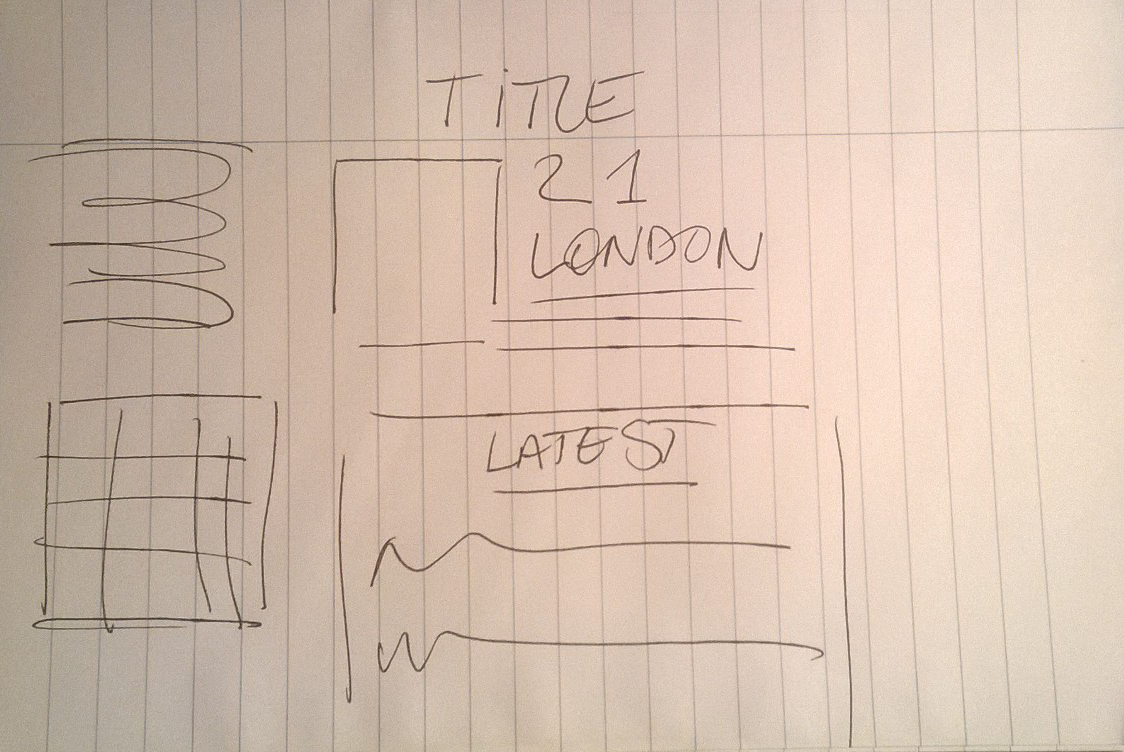 TITLE
21
LONDON
LATEST